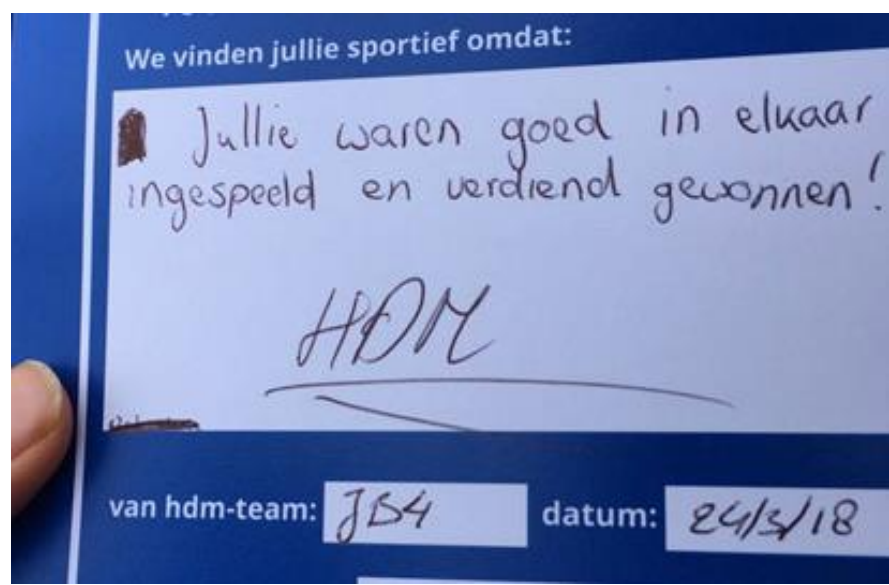 We vinden jullie sportief omdat:
Jullie waren goed in elkaar
ingespeeld en verdiend gewonnen!
HDM
van hdm-team: JB4 datum: 24/3/18